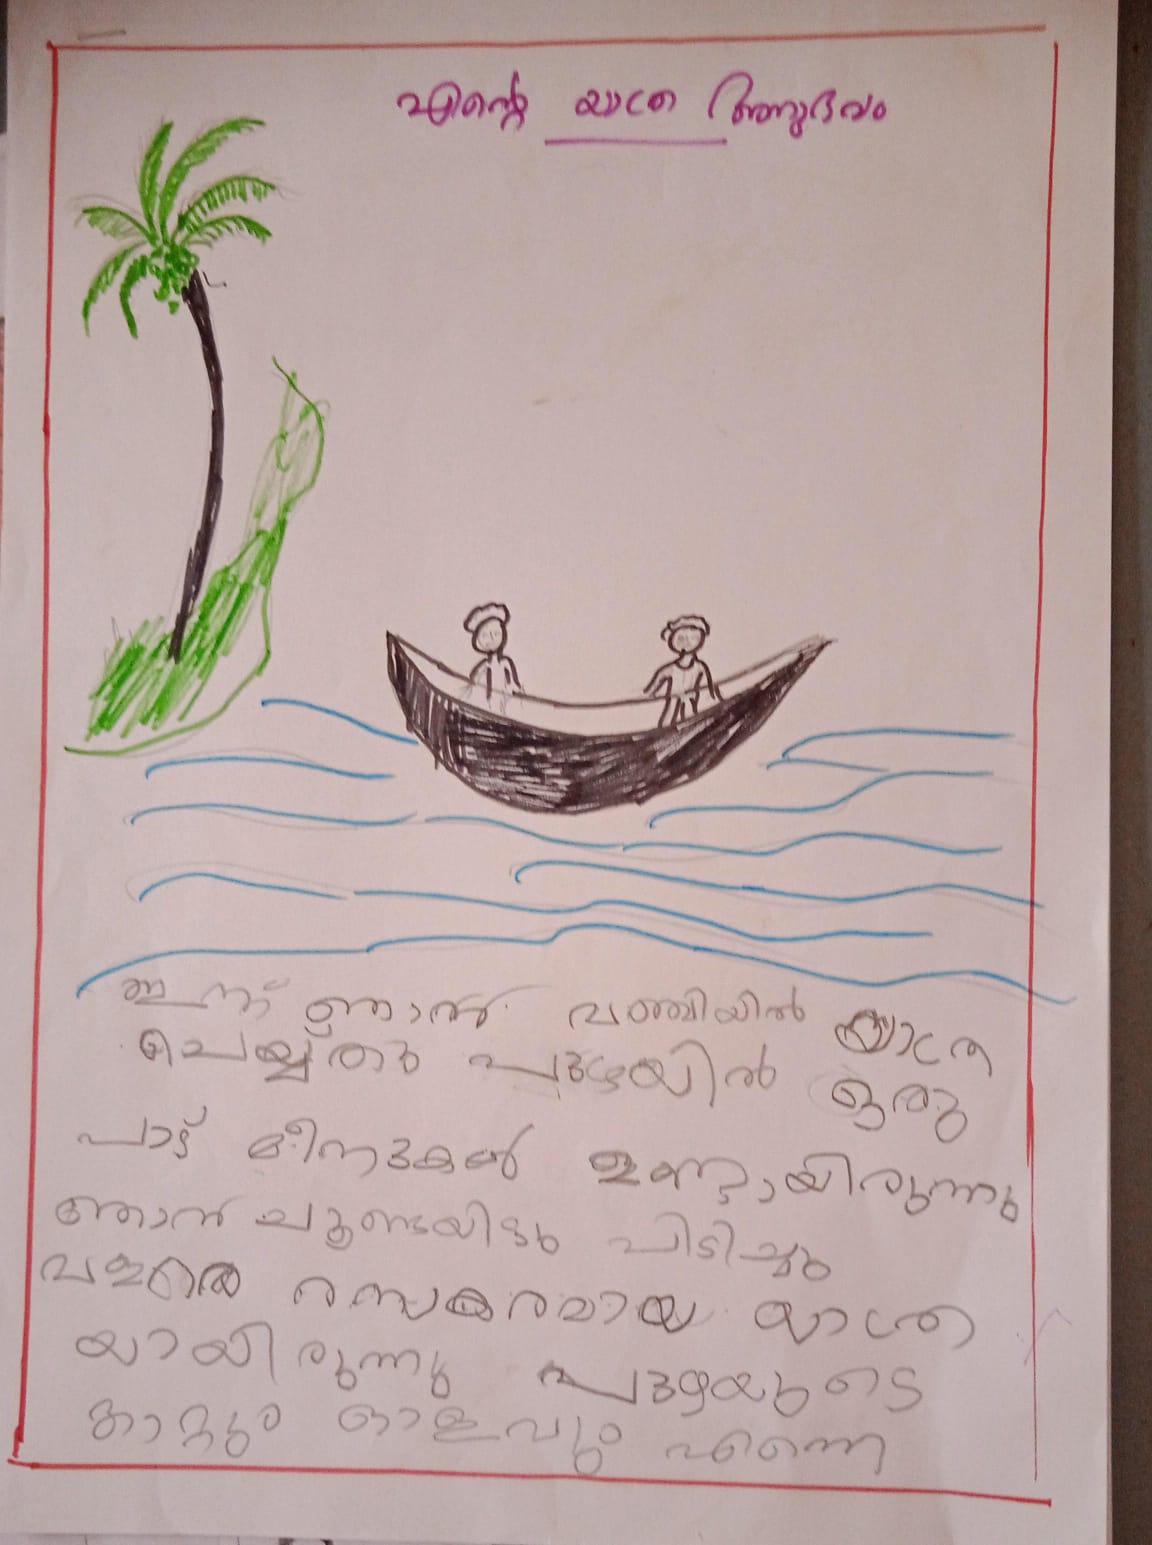 എന്റെ യാത്ര അനുഭവം
ഇന്ന് ഞാൻ വഞ്ചിയിൽ യാത്ര
ചെയ്തു പുഴയിൽ ഒരു
പാട് മീനുകൾ ഉണ്ടായിരുന്നു
ഞാൻ ചൂണ്ടയിട്ടു പിടിച്ചു
വളരെ രസകരമായ യാത്ര
യായിരുന്നു പുഴയുടെ
കാറ്റും ഓളവും എന്നെ